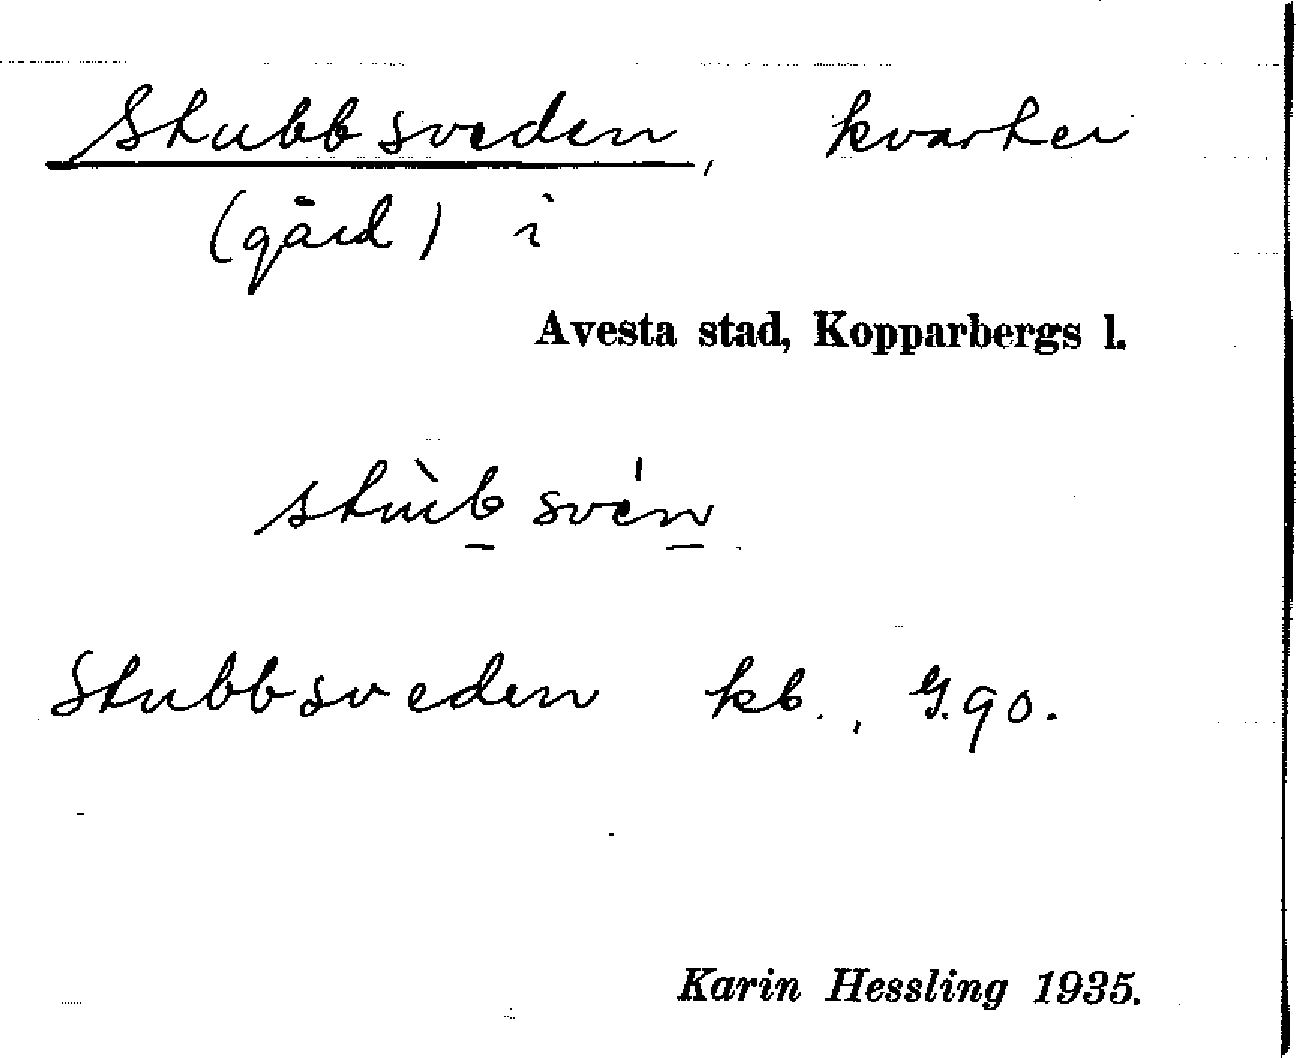 Stubbsveden, kvarter
(gård) i
Avesta stad, Kopparbergs l.
stùb své̍n
Stubbsveden kb., G.90.
Karin Hessling 1935.